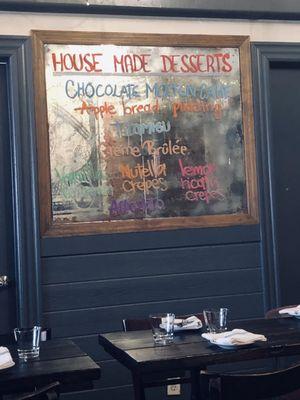 HOUSE MADE DESSERTS
CHOCOLATE MOLTEN CAKE
Apple bread pudding
TIRAMISU
Crème Brûlée
Nutella lemon
crepes ricotta
crepe
Affogato